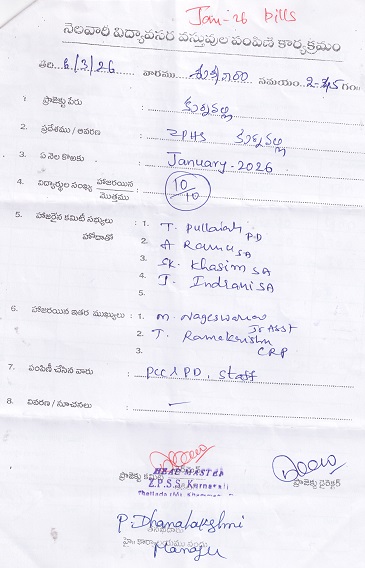 Jan-26 bills
నెలవారీ విద్యావసర వస్తువుల పంపిణీ కార్యక్రమం
తేది: 6/3/26 వారము శుక్రవారం సమయం: 2-45 గం
1. ప్రాజెక్టు పేరు : కుర్నవల్లి
2. ప్రదేశము / ఆవరణ : ZPHS కుర్నవల్లి
3. ఏ నెల కొఱకు : January-2026
4. విద్యార్థుల సంఖ్య హాజరయిన మొత్తము : 10/10
5. హాజరైన కమిటీ సభ్యులు హోదాతో : 1. T. Pullaiah P.D
2. A Ramu SA
3. SK. Khasim SA
4. I. Indrani SA
5.
6. హాజరయిన ఇతర ముఖ్యులు : 1. M. Nageswararao Jr Asst
2. T. Ramakrishna CRP
3.
7. పంపిణీ చేసిన వారు : PCC & PD, Staff
8. వివరణ / సూచనలు : —
ప్రాజెక్టు
HEAD MASTER
Z.P.S.S. Kurnavalli
Thallada (Md)
ప్రాజెక్టు డైరెక్టర్
P. Dhanalakshmi
Manager